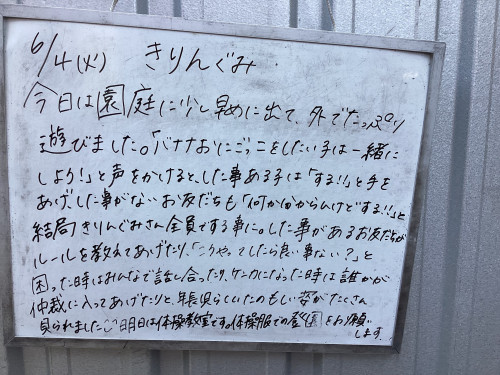 6/4(火) きりんぐみ
今日は園庭に少し早めに出て、外でたっぷり
遊びました。「バナナおにごっこをしたい子は一緒に
しよう!」と声をかけると、した事ある子は「する!!」と手を
あげ、した事がないお友だちも「何か分からんけどする!!」と
結局きりんぐみさん全員でする事に。した事があるお友だちが
ルールを教えてあげたり、「こうやってしたら良い事ない?」と
困った時はみんなで話し合ったり、ケンカになった時は誰かが
仲裁に入ってあげたりと、年長児らしくいたのもしい姿がたくさん
見られました 明日は体操教室です。体操服での登園をお願い
します。